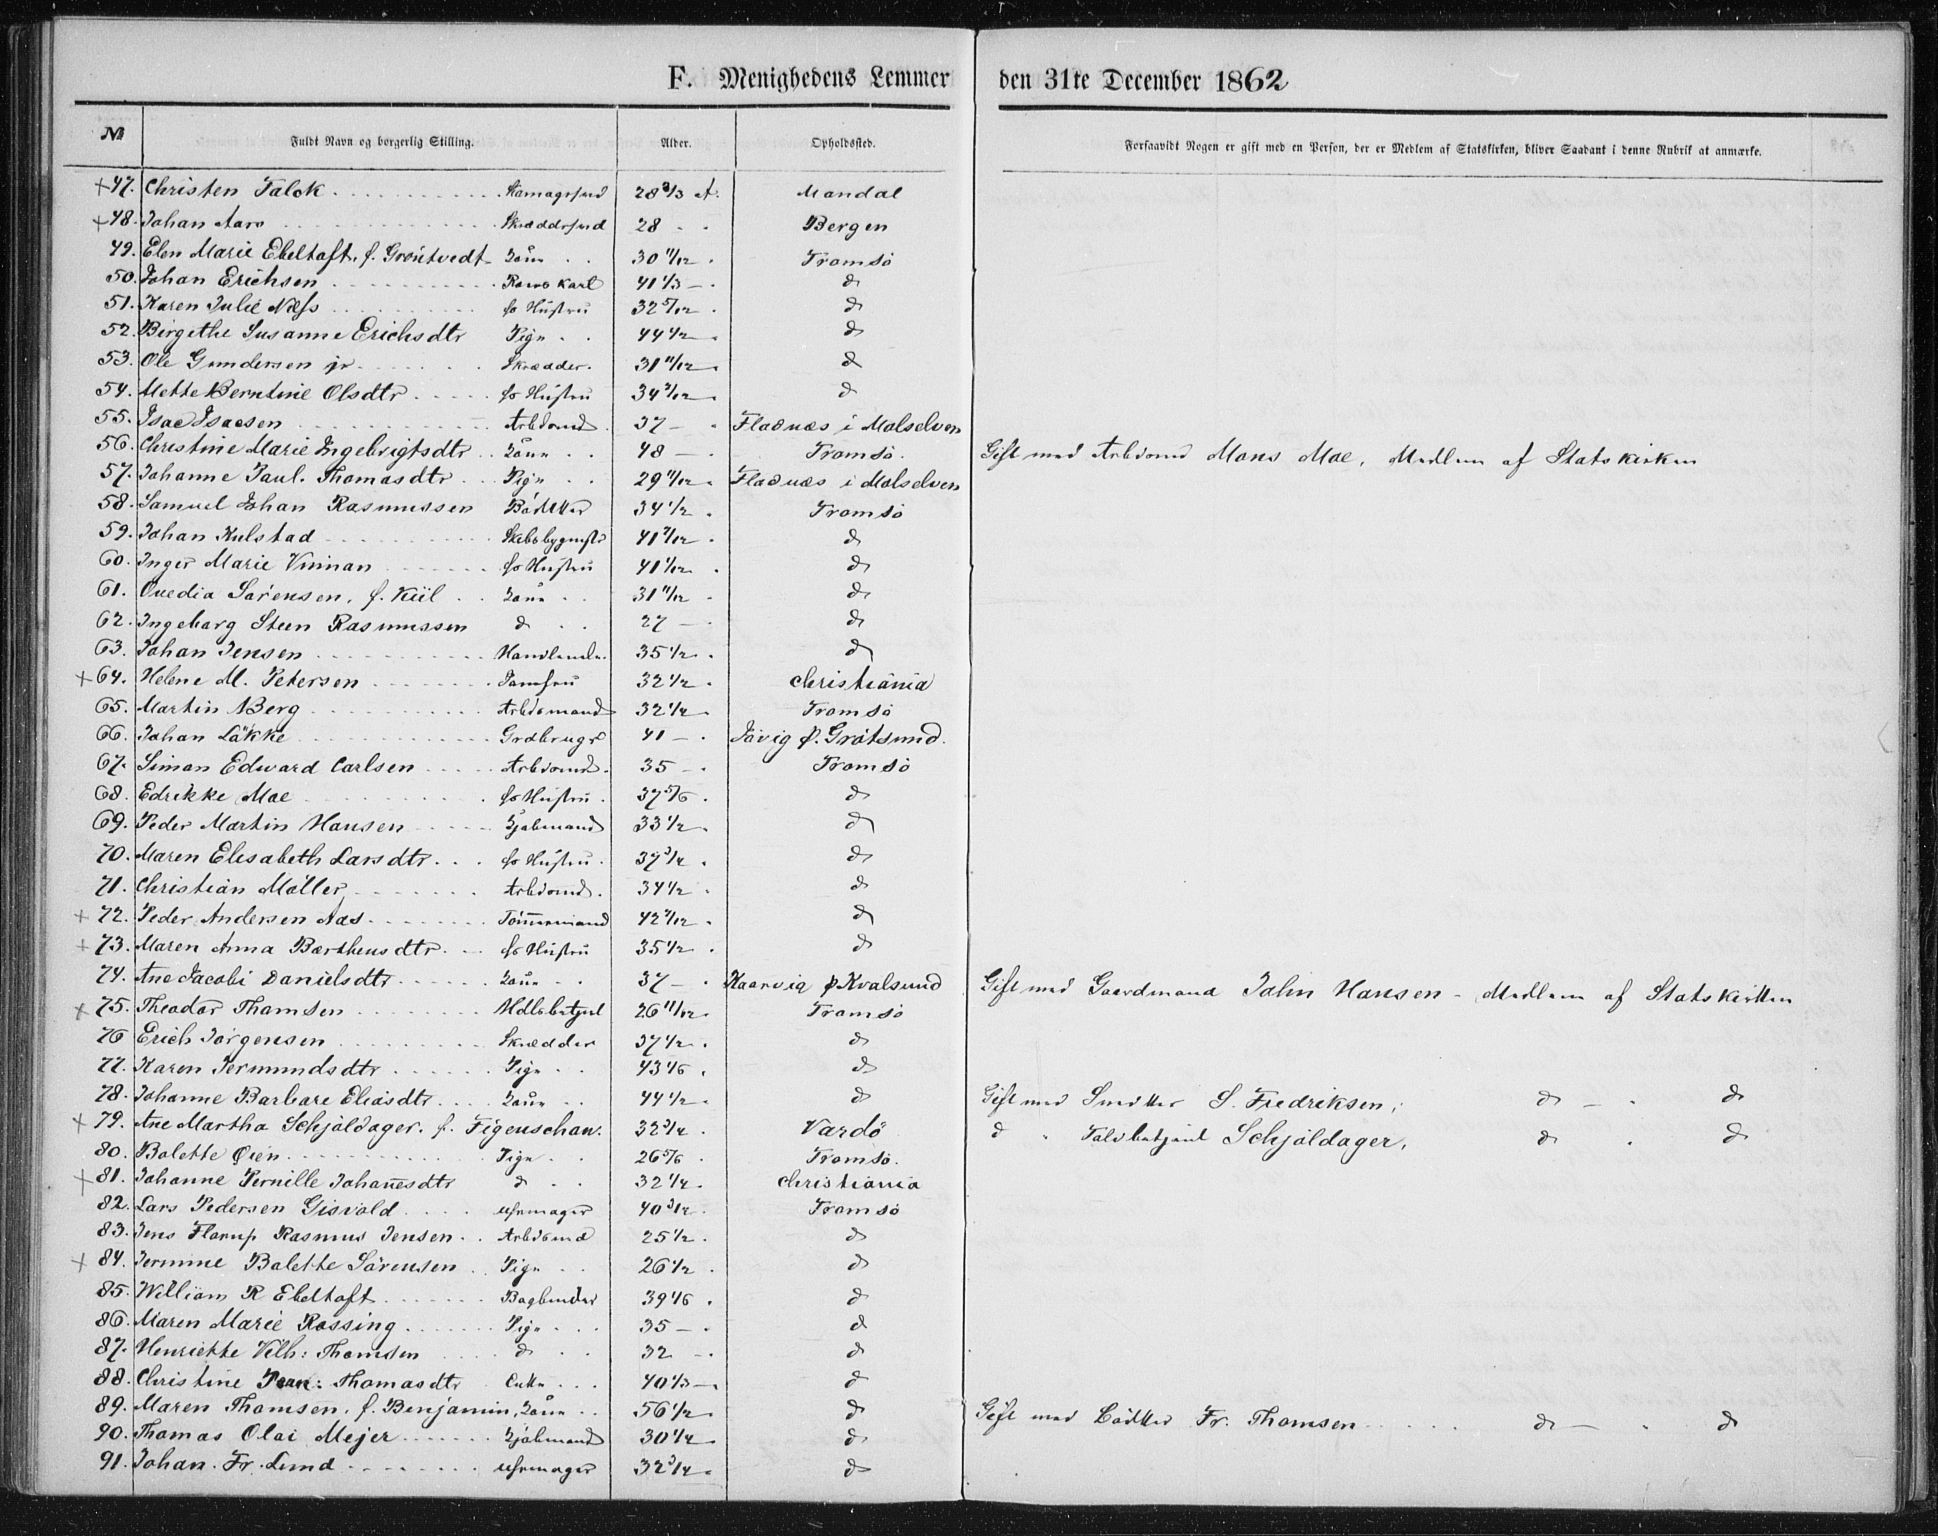 F. Menighedens Lemmer den 31te December 1862
№ Fuldt Navn og borgerlig Stilling. Alder. Opholdssted. Forsaavidt Nogen er gift med en Person, der er Medlem af Statskirken, bliver Saadant i denne Rubrik at anmærke.
+ 47. Christen Falck 28 2/3 A. Mandal
+ 48. Johan Aars 28 Bergen
49. Elen Marie Ebeltoft, f. Gröntvedt Kone 30 11/12 Tromsö
50. Johan Erichsen 41 1/3 d
51. Karen Julie Næss Hustru 32 5/12 d
52. Birgethe Susanne Erichsdtr Pige 44 1/2 d
53. Ole Gundersen jr Skrædder 31 11/12 d
54. Mette Berntine Olsdtr Hustru 34 7/12 d
55. Isac Isacsen Arbdsmd 37 Fladnæs i Malselven
56. Christine Marie Ingebrigtsdtr Kone 48 Tromsö. Gift med Arbdsmd Mons Moe, Medlem af Statskirken
57. Johanne Paul. Thomasdtr Pige 29 11/12 Fladnæs i Malselven
58. Samuel Johan Rasmussen Bödtker 34 1/2 Tromsö
59. Johan Kulstad Skibsbygmstr 41 7/12 d
60. Inger Marie Vinnan Hustru 41 1/12 d
61. Ovedia Sörensen, f. Kiil Kone 31 11/12 d
62. Ingeborg Steen Rasmussen d 27 d
63. Johan Jensen 35 1/2 d
+ 64. Helene M. Petersen Jomfru 32 1/2 Christiania
65. Martin Berg Arbdsmand 32 1/4 Tromsö
66. Johan Lökke Grdbrugr 41 Grötsund.
67. Simon Edward Carlsen Arbdsmd. 35 Tromsö
68. Edrikke Moe Hustru 37 5/6 d
69. Peder Martin Hansen 33 1/2 d
70. Maren Elisabeth Larsdtr Hustru 37 3/4 d
71. Christian Möller Arbdsmd. 34 1/2 d
+ 72. Peder Andersen Næs Tömmermand 42 7/12 d
+ 73. Maren Anna Barthensdtr Hustru 35 1/2 d
74. Ane Jacobi Danielsdtr Kone 37 Kaarvig p. Kvalsund Gift med Gaardmand John Hansen - Medlem af Statskirken
+ 75. Theodor Thomsen 26 11/12 Tromsö
76 Erich Jörgensen Skrædder 37 1/2 d
77. Karen Jermundsdtr Pige 43 1/6 d
78. Johanne Barbare Eliasdtr Kone 44 1/2 d Gift med S. Fredriksen, d d
+ 79. Ane Martha Schjöldager. f. Figenschau. 32 3/4 Vardö d Schjöldager, d d
80. Bolette Øien Pige 26 5/6 Tromsö.
+ 81. Johanne Pernille Johanesdtr d 32 1/4 Christiania
82. Lars Pedersen Gisvold Uhrmager 40 3/12 Tromsö
83. Jens Flarup Rasmus Jensen Arbdsmd 25 1/2 d
+ 84. Jermine Bolette Sörensen Pige 26 1/2 d
85. William R Ebeltoft Bogbinder 39 1/6 d
86. Maren Marie Rossing Pige 35 d
87. Henriette Vilh: Thomsen d 32 d
88. Christine Thomasdtr Enke 40 1/3 d
89. Maren Thomsen, f. Benjamin, Kone 56 1/2 d Gift med Bödtker Fr. Thomsen d d
90. Thomas Olai Mejer 30 1/4 d
91. Johan. Fr. Lund Uhrmager 32 3/4 d